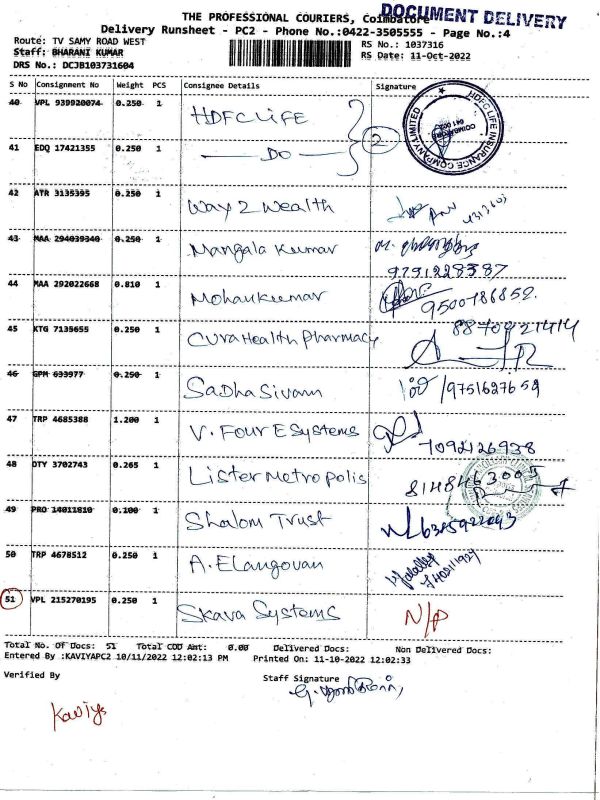 DOCUMENT DELIVERY
THE PROFESSIONAL COURIERS, Coimbatore
Delivery Runsheet - PC2 - Phone No.:0422-3505555 - Page No.:4
Route: TV SAMY ROAD WEST RS No.: 1037316
Staff: BHARANI KUMAR RS Date: 11-Oct-2022
DRS No.: DCJB103731604
S No Consignment No Weight PCS Consignee Details Signature
40 VPL 939920074 0.250 1 HDFC LIFE 2
HDFC LIFE INSURANCE COMPANY LIMITED
41 EDQ 17421355 0.250 1 DO
42 ATR 3135395 0.250 1 Way 2 Wealth
43 MAA 294039340 0.250 1 Mangala Kumar
9791228387
44 MAA 292022668 0.810 1 Mohankumar 9500786852.
45 KTG 7135655 0.250 1 Cura Health Pharmacy
46 GPM 633977 0.250 1 SaDhaSivam /9751627659
47 TRP 4685388 1.200 1 V. Four E Systems 7092126938
48 DTY 3702743 0.265 1 Lister Metropolis
49 PRO 14011810 0.100 1 Shalom Trust
50 TRP 4678512 0.250 1 A. Elangovan
51 VPL 215270195 0.250 1 Skava Systems N/P
Total No. Of Docs: 51 Total COD Amt: 0.00 Delivered Docs: Non Delivered Docs:
Entered By :KAVIYAPC2 10/11/2022 12:02:13 PM Printed On: 11-10-2022 12:02:33
Verified By Staff Signature
Kaviya